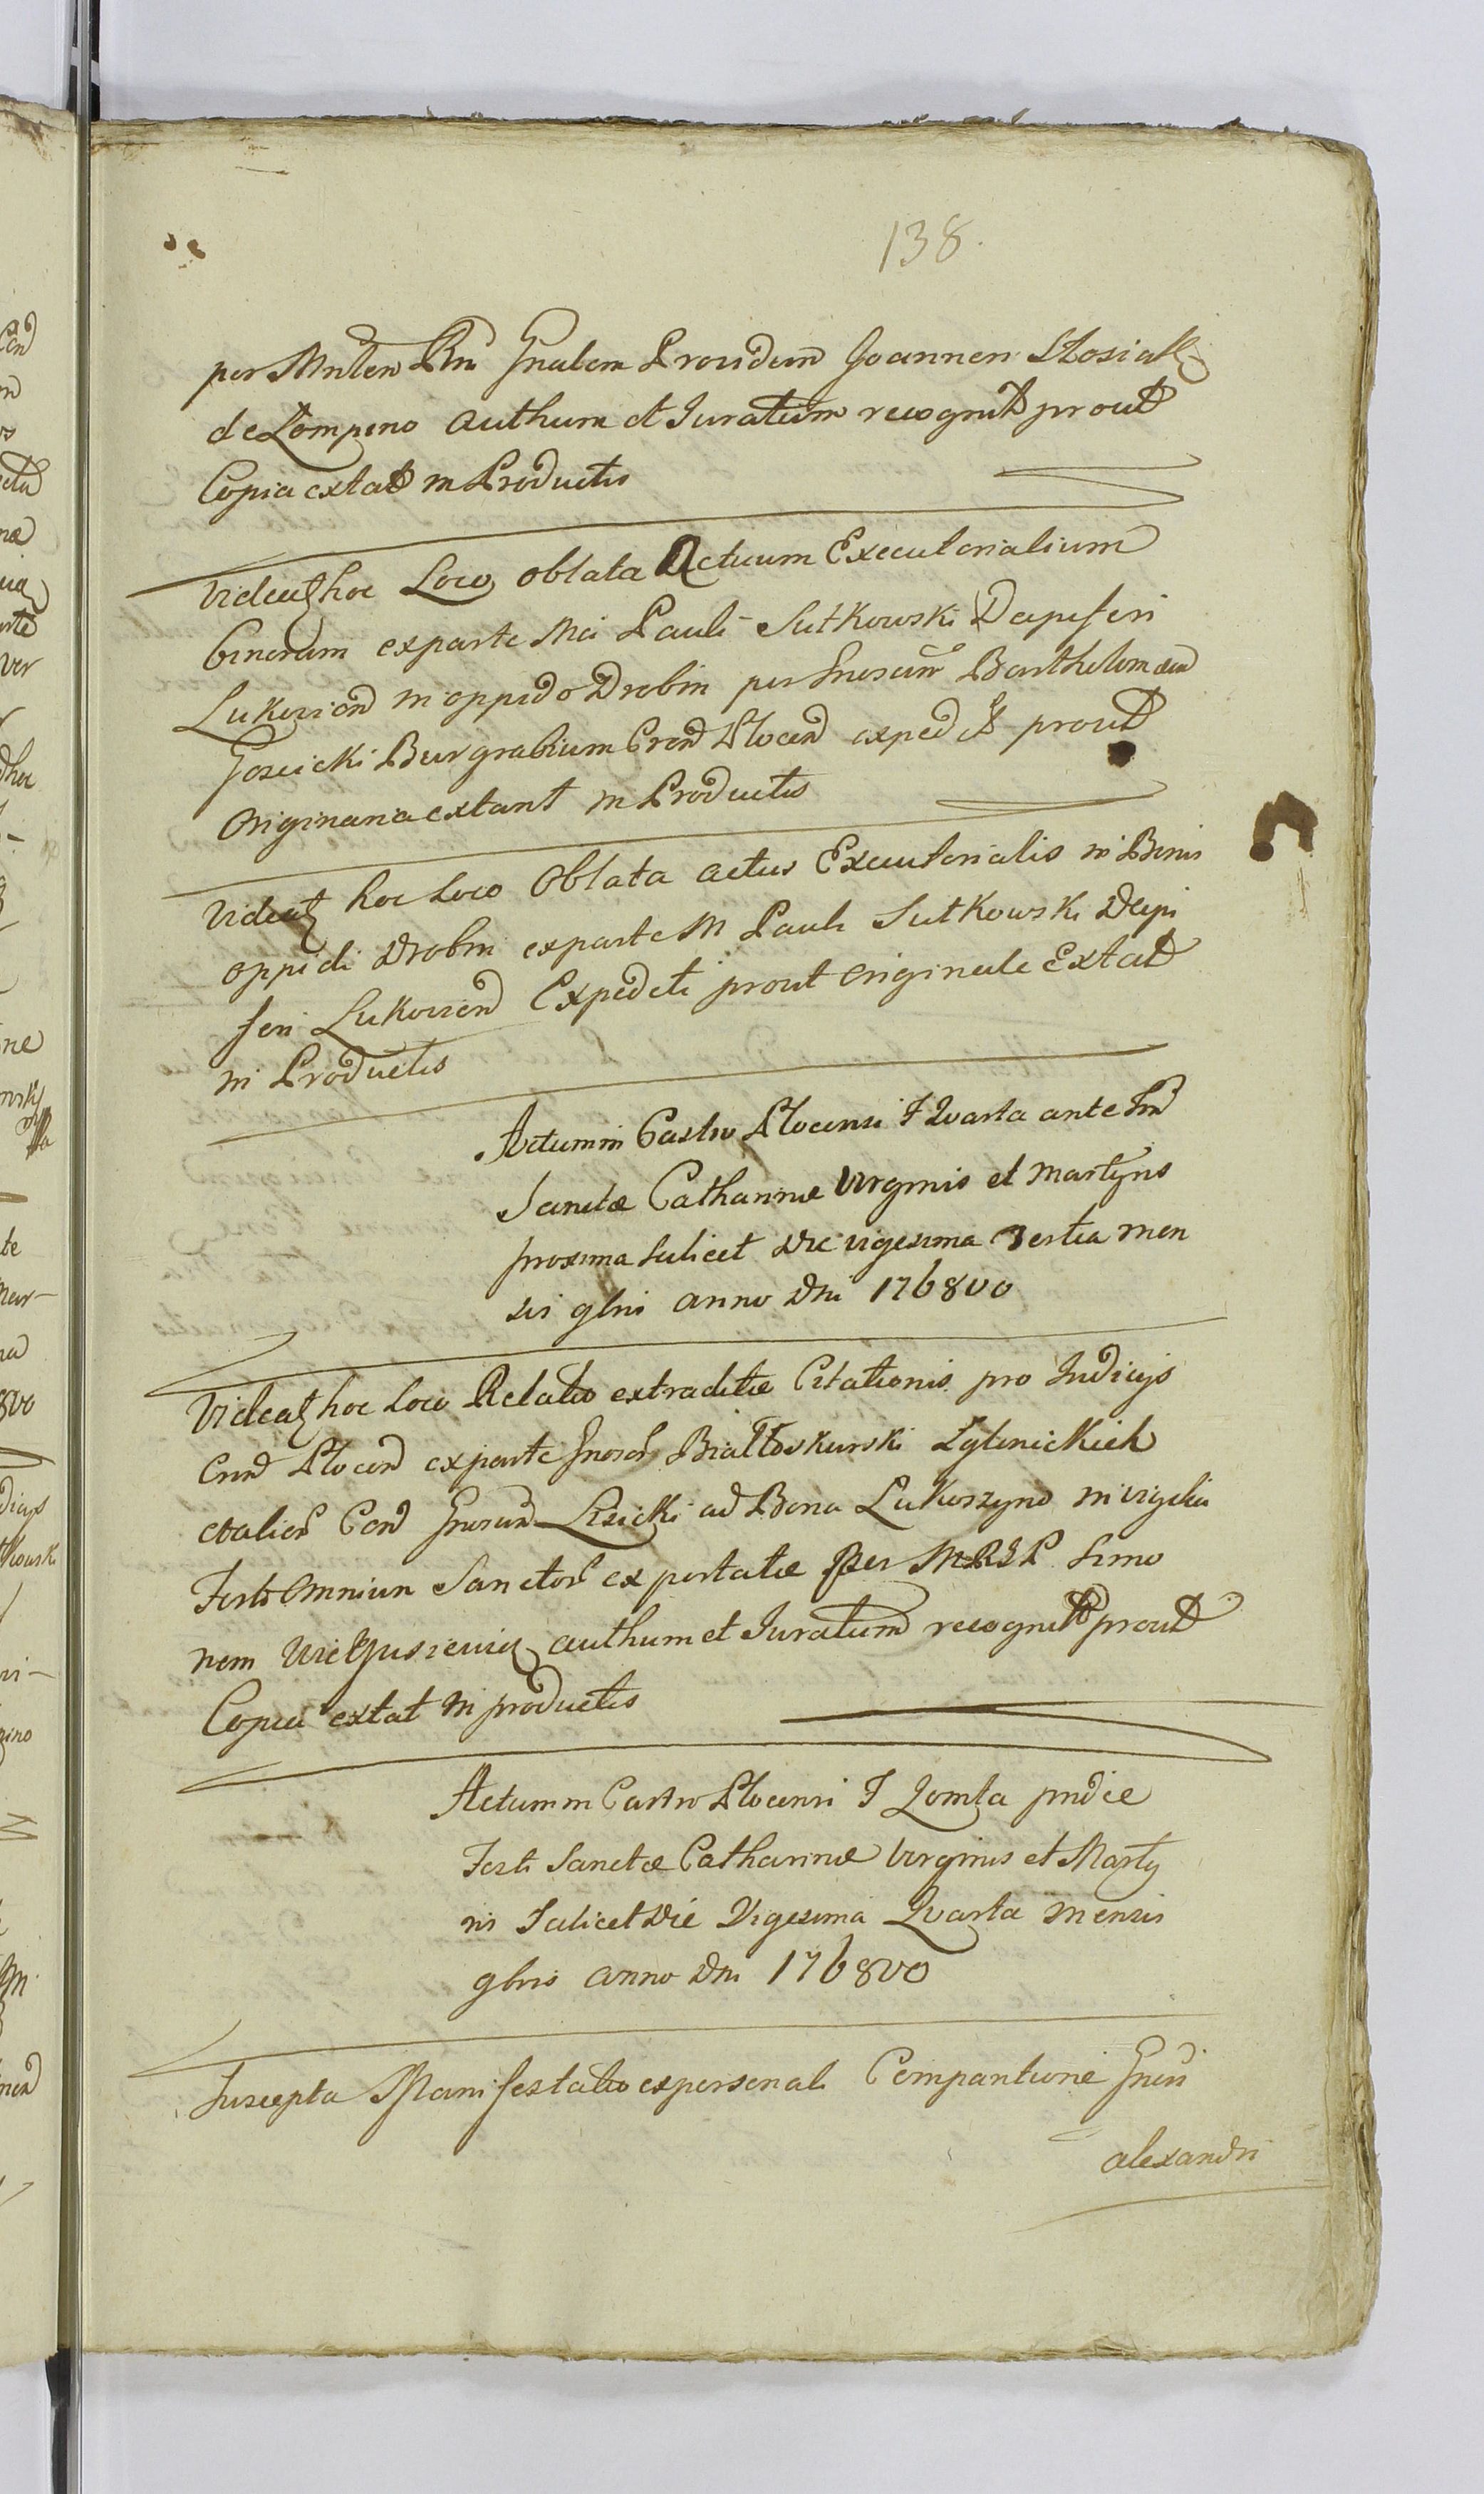 138.
per Mnlem Rni Gnalem Providum Joannem Stosiak
de Łempino authum et Juratum recognit prout
Copia extat in Productis
Videatz hoc Loco oblata Actuum Executorialium
binorum ex parte Mci Pauli Sutkowski Dapiferi
Lukovien in oppido Drobin per Gnosum Bartholomaeum
Gosicki Burgrabium Cren Plocen exped et prout
Originaria extant in Productis
Videatz hoc Loco Oblata actus Executorialis in Bonis
oppidi Drobin ex parte M Pauli Sutkowski Dapi
feri Lukovien Expediti prout Originale Extat
in Productis
Actum in Castro Plocensi F Quarta ante Fm
Sanctae Catharinae Virginis et Martyris
proxima scilicet Die vigesima Tertia men
sis 9bris anno Dni 1768vo
Videatz hoc Loco Relatio extraditae Citationis pro Judicijs
Cren Plocen ex parte Gnosor Białłoskurski Lylinickich
et alior Con Gnosum Lisicki ad Bona Lukoszyno in vigilia
Festi Omnium Sanctor exportatae Per M R G P Simo
nem authum et Juratum recognit prout
Copia extat in productis
Actum in Castro Plocensi F Qvinta pridie
Festi Sanctae Catharinae Virginis et Marty
ris Scilicet Die Vigesima Qvarta mensis
9bris anno Dni 1768vo
Suscepta Manifestatio ex personali Comparitione Gnsi
alexandri